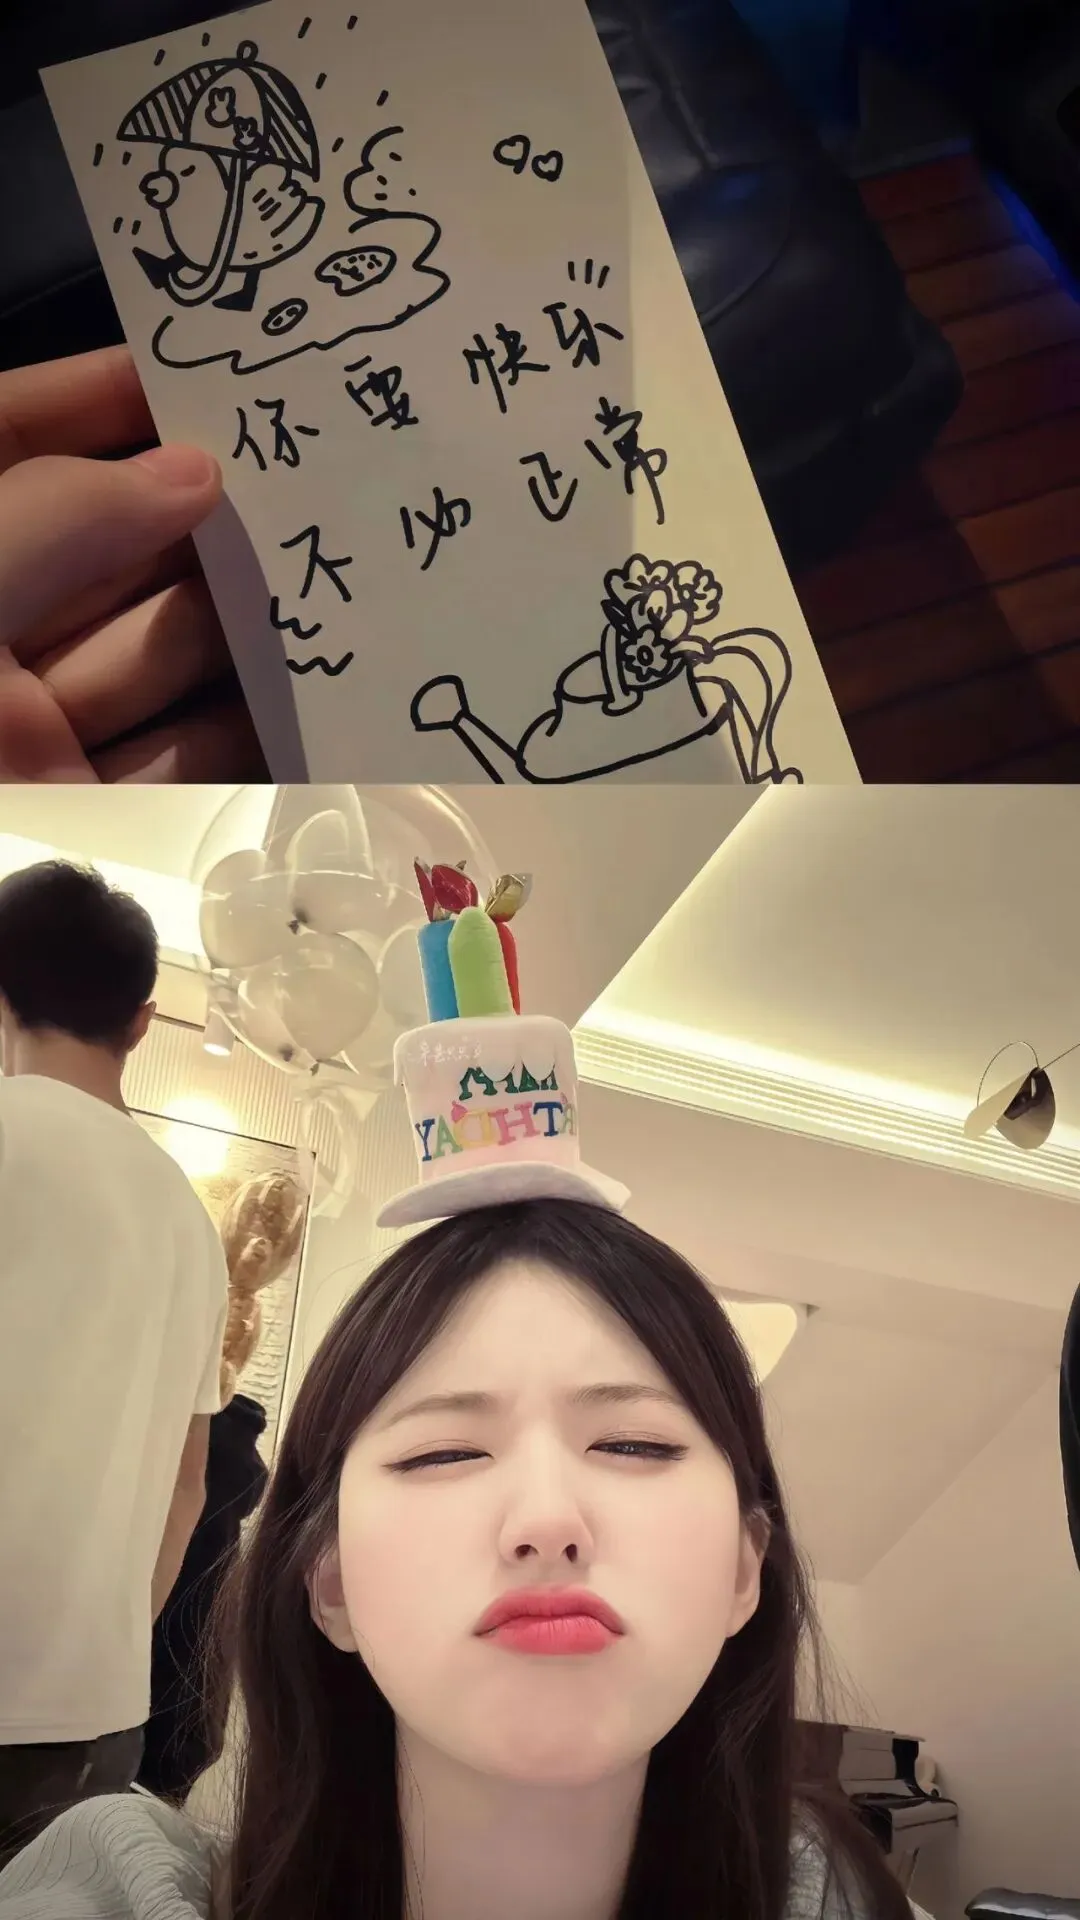 你要快乐
不必正常
YADHTR